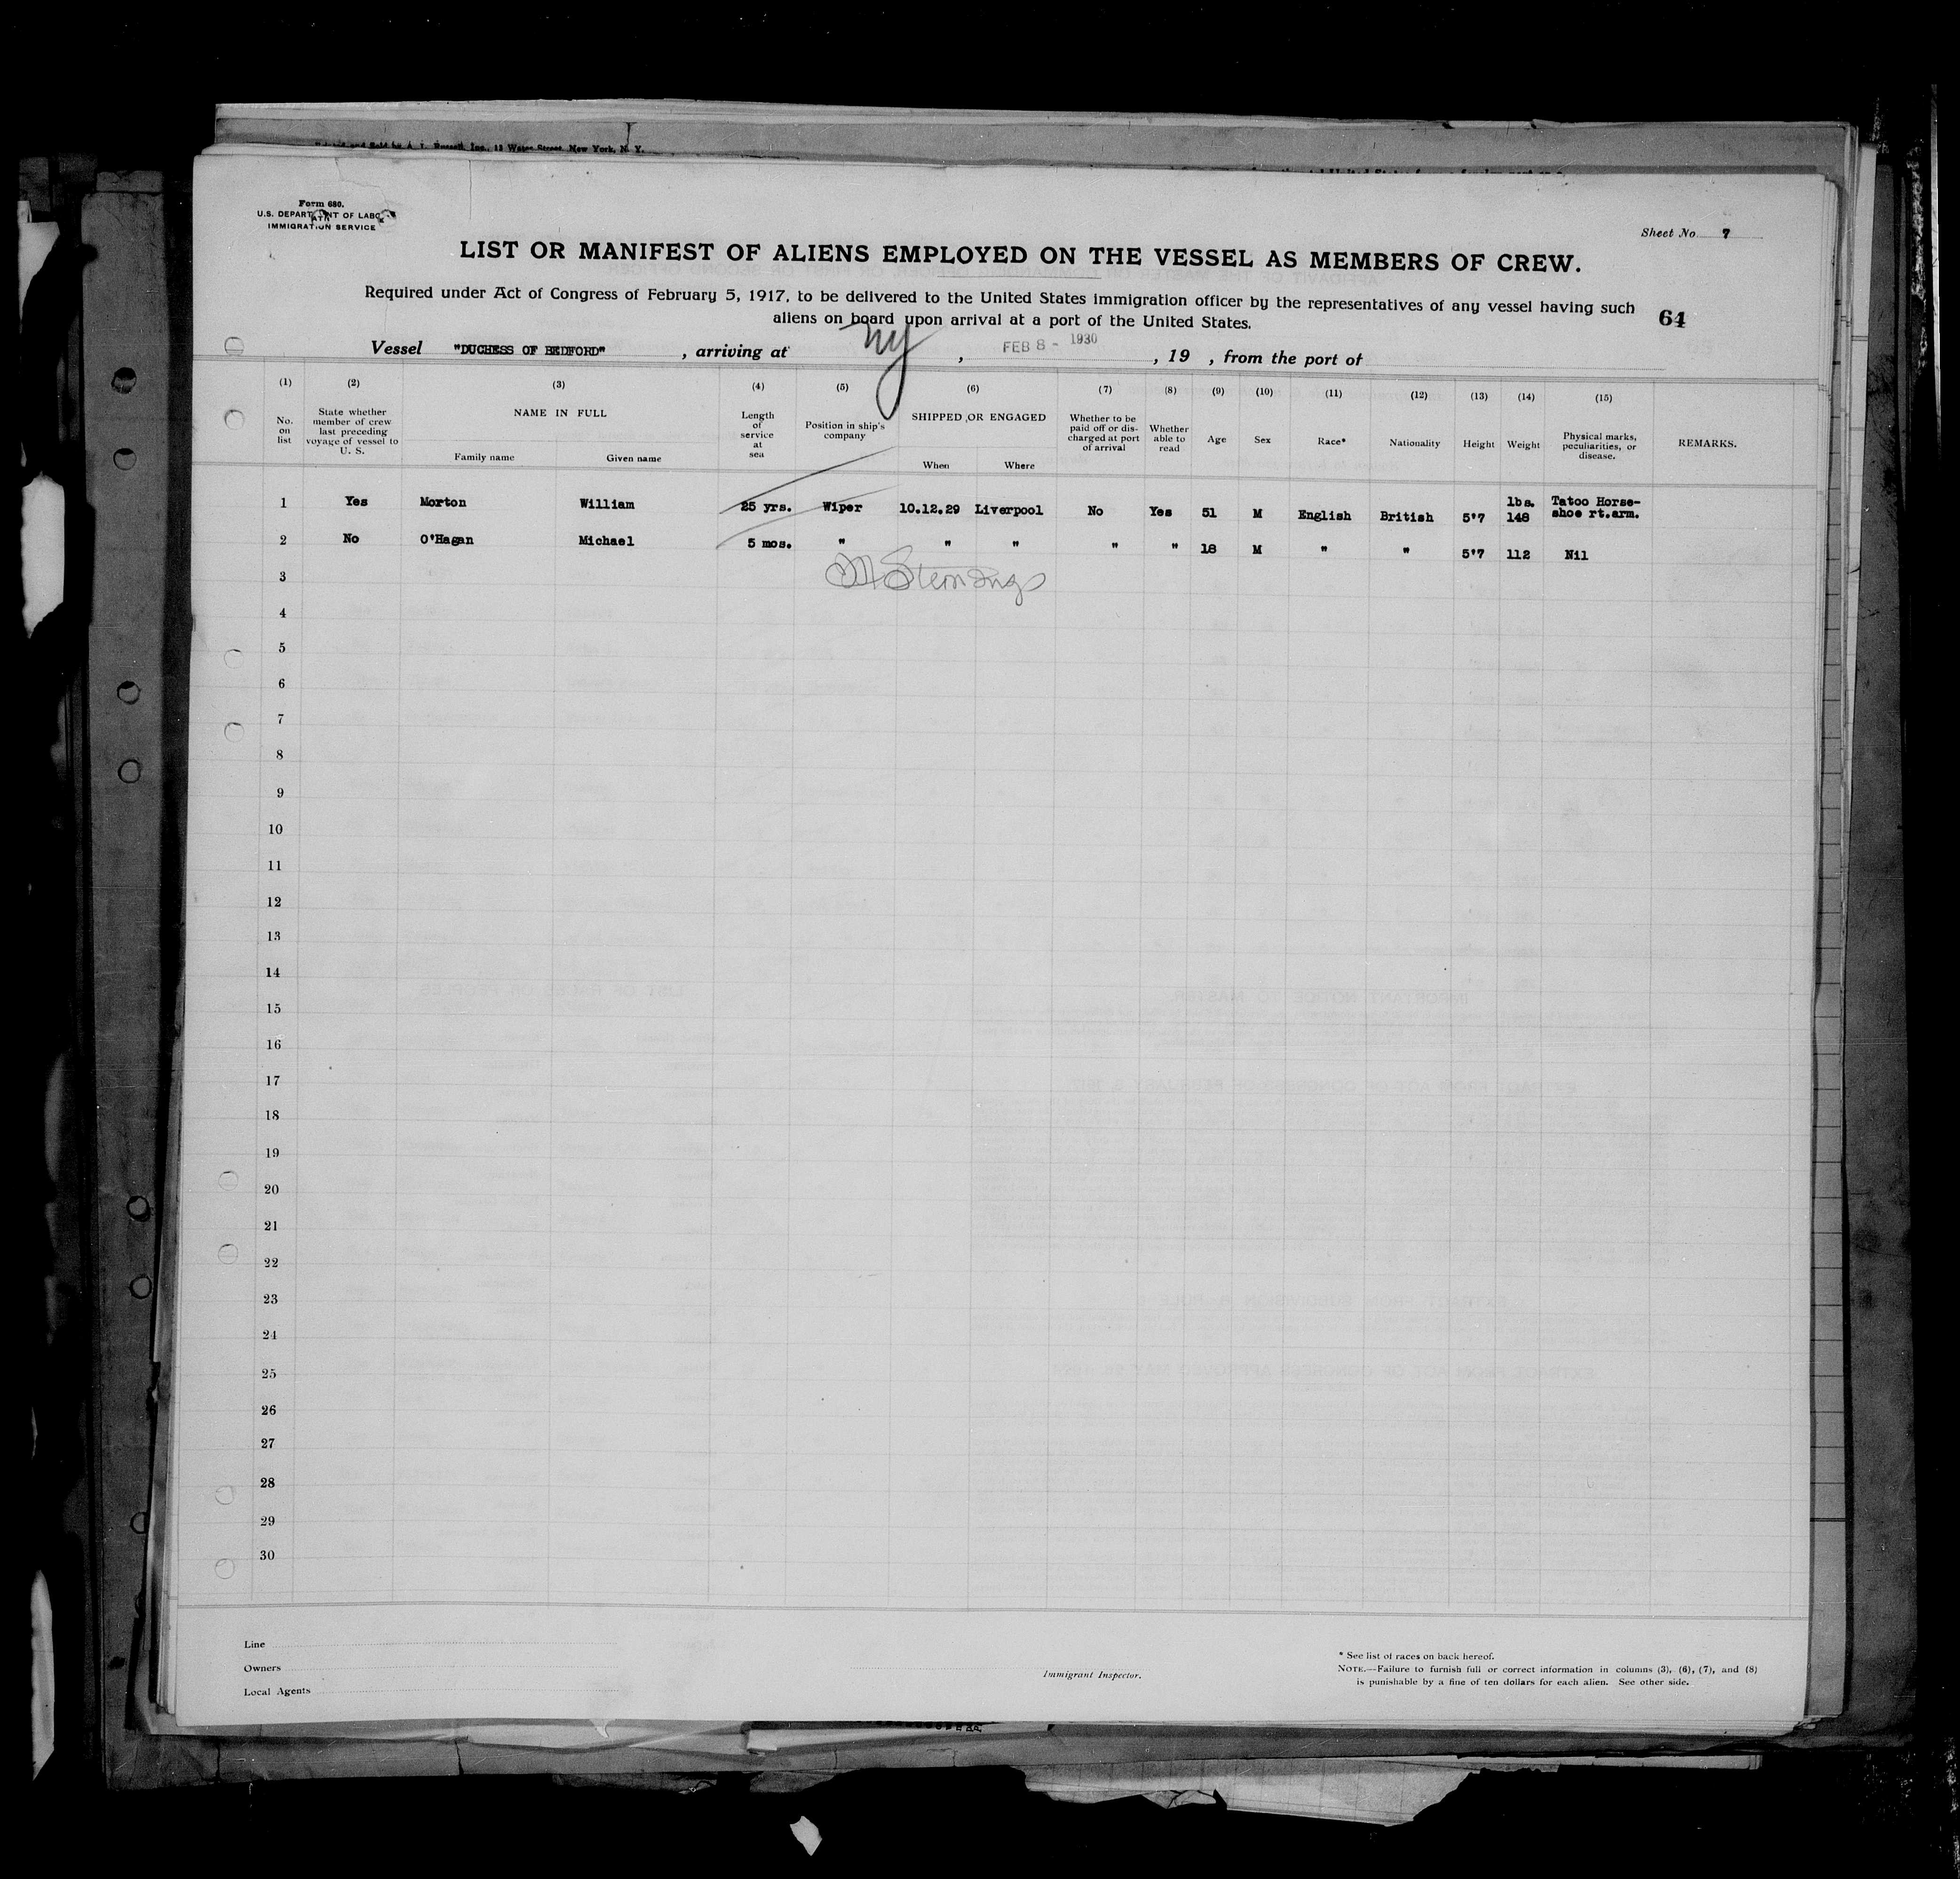 Printed and Sold by A. L. Russell, Inc., 12 Water Street, New York, N. Y.
Form 680.
U.S. DEPARTMENT OF LABOR
IMMIGRATION SERVICE
Sheet No. 7
LIST OR MANIFEST OF ALIENS EMPLOYED ON THE VESSEL AS MEMBERS OF CREW.
Required under Act of Congress of February 5, 1917, to be delivered to the United States immigration officer by the representatives of any vessel having such
aliens on board upon arrival at a port of the United States.
64
Vessel "DUCHESS OF BEDFORD", arriving at NY, FEB 8 - 1930, 19 , from the port of
(1) (2) (3) (4) (5) (6) (7) (8) (9) (10) (11) (12) (13) (14) (15)
No. on list State whether member of crew last preceding voyage of vessel to U. S. NAME IN FULL Length of service at sea Position in ship's company SHIPPED OR ENGAGED Whether to be paid off or discharged at port of arrival Whether able to read Age Sex Race* Nationality Height Weight Physical marks, peculiarities, or disease. REMARKS.
Family name Given name When Where
1 Yes Morton William 25 yrs. Wiper 10.12.29 Liverpool No Yes 51 M English British 5'7 lbs. 148 Tatoo Horse-shoe rt.arm.
2 No O'Hagan Michael 5 mos. " " " " " 18 M " " 5'7 112 Nil
3
4
5
6
7
8
9
10
11
12
13
14
15
16
17
18
19
20
21
22
23
24
25
26
27
28
29
30
Line
Owners
Local Agents
Immigrant Inspector.
* See list of races on back hereof.
NOTE.—Failure to furnish full or correct information in columns (3), (6), (7), and (8)
is punishable by a fine of ten dollars for each alien. See other side.